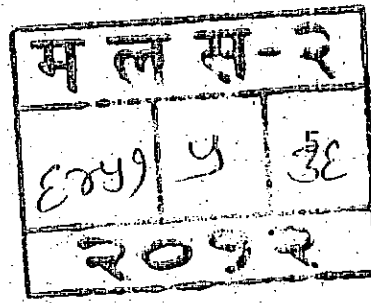 म ल स - २
६४५१ ५
२०१२